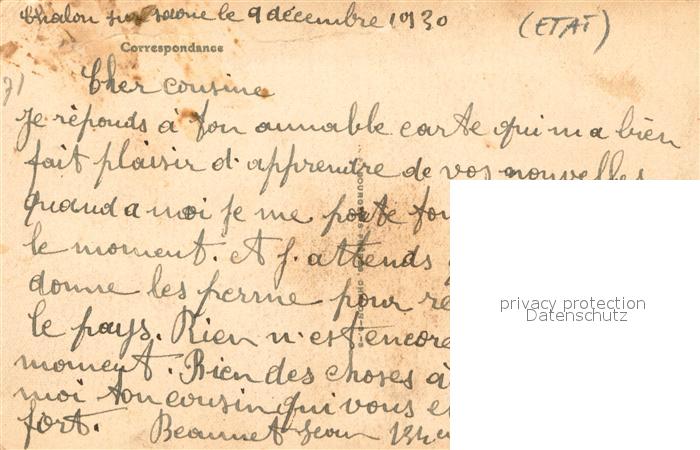 Chalon sur saone le 9 décembre 1930 (ETAT)
Correspondance
71
Cher cousine
Je réponds à ton aimable carte qui m a bien
fait plaisir d'apprendre de vos nouvelles
quand a moi je me porte
le moment. et j. attends
donne les perme pour
le pays. Rien n'est encore
moment. Bien des choses à
moi ton cousin qui vous
fort. Jean
privacy protection
Datenschutz